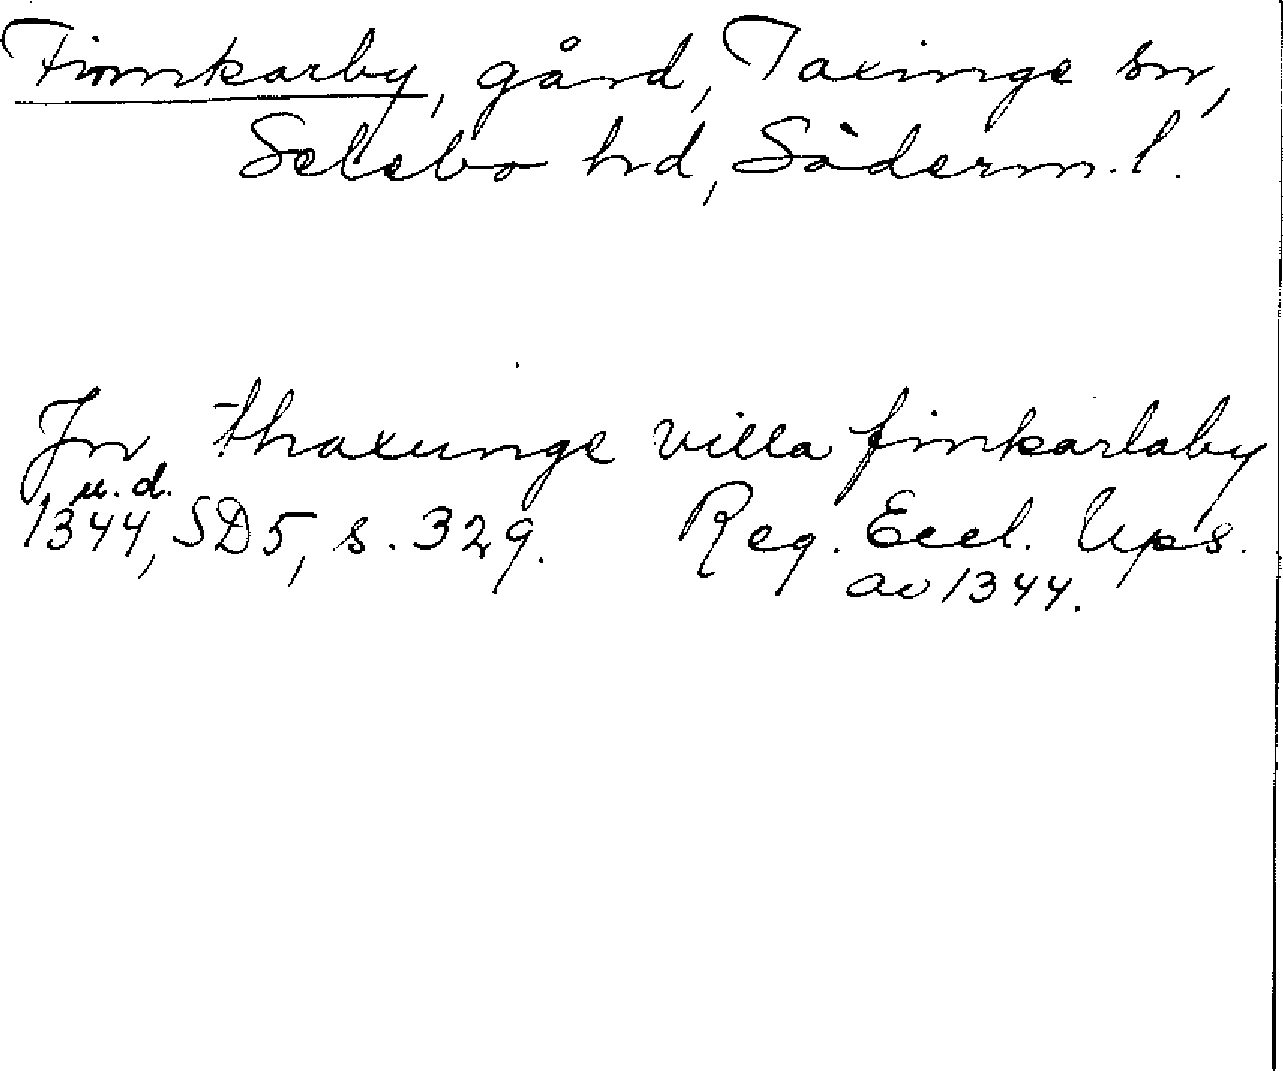 Finnkarby, gård, Taxinge sn,
Selebo hd, Söderm. l.
Jn thaxunge villa finkarlaby
u. d.
1344, SD5, s. 329. Reg. Eccl. Ups.
av 1344.